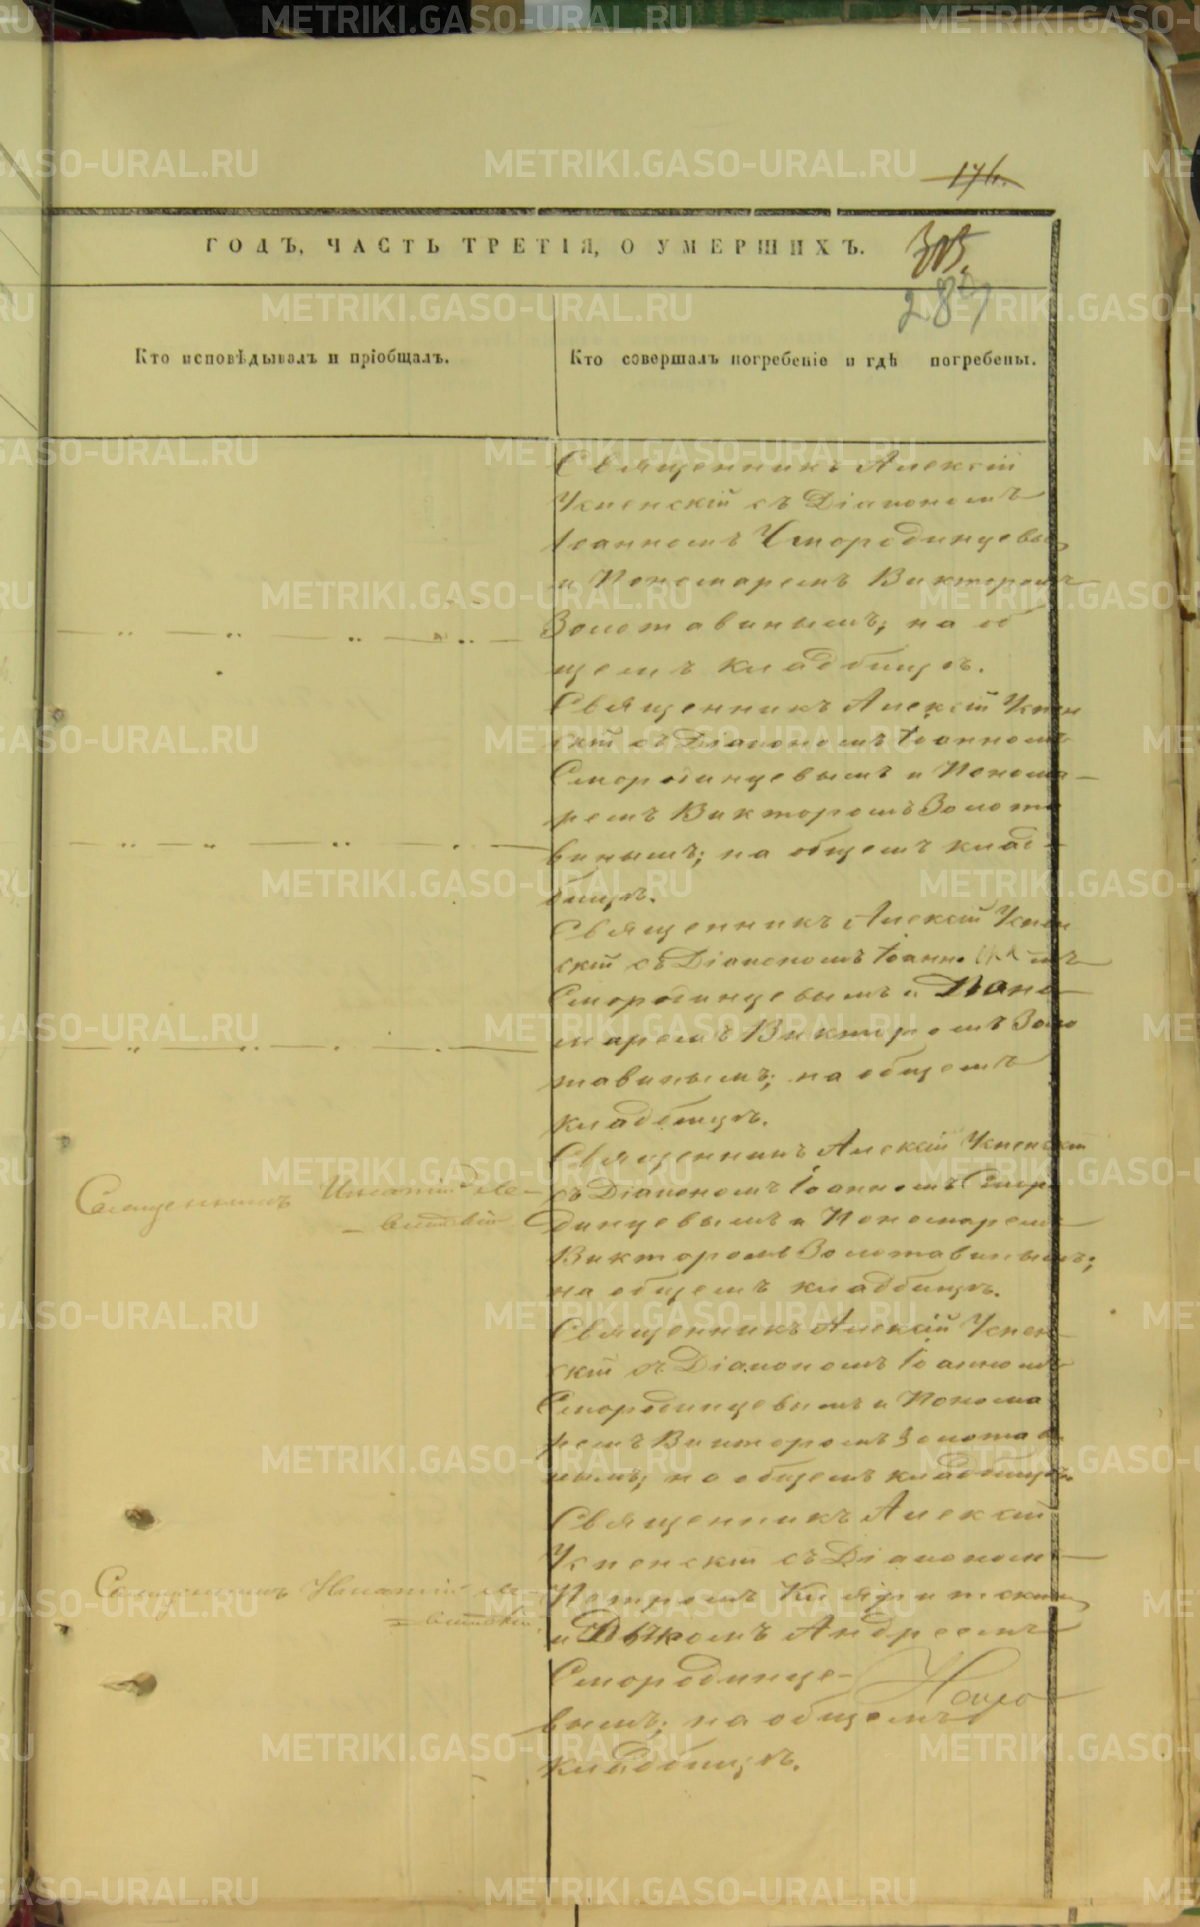 174.
ГОДЪ, ЧАСТЬ ТРЕТІЯ, О УМЕРШИХЪ.
287
Кто исповѣдывалъ и пріобщалъ.
Кто совершалъ погребеніе и гдѣ погребены.
Священникъ Алексій
Успенскій съ Діакономъ
Іоанномъ Смородинцевы
и Пономаремъ Викторомъ
Золотавинымъ; на об
щемъ кладбищѣ.
Священникъ Алексій Успен
скій съ Діакономъ Іоанномъ
Смородинцевымъ и Понома-
ремъ Викторомъ Золота
винымъ; на общемъ клад-
бищѣ.
Священникъ Алексій Успен
скій съ Діакономъ
Смородинцевымъ и Поно
маремъ Викторомъ Золо
тавинымъ; на общемъ
кладбищѣ.
Священникъ Игнатій Ле-
Священникъ Алексій Успенскій
съ Діакономъ Іоанномъ Сморо
динцевымъ и Пономаремъ
Викторомъ Золотавинымъ;
на общемъ кладбищѣ.
Священникъ Алексій Успен-
скій съ Діакономъ Іоанномъ
Смородинцевымъ и Понома
ремъ Викторомъ Золотави
нымъ; на общемъ кладбищѣ.
Священникъ Алексій
Успенскій съ Діакономъ
Священникъ Игнатій Ле-
Петромъ
и Дьякомъ Андреемъ
Смородинце-
вымъ; на общемъ
кладбищѣ.
METRIKI.GASO-URAL.RU